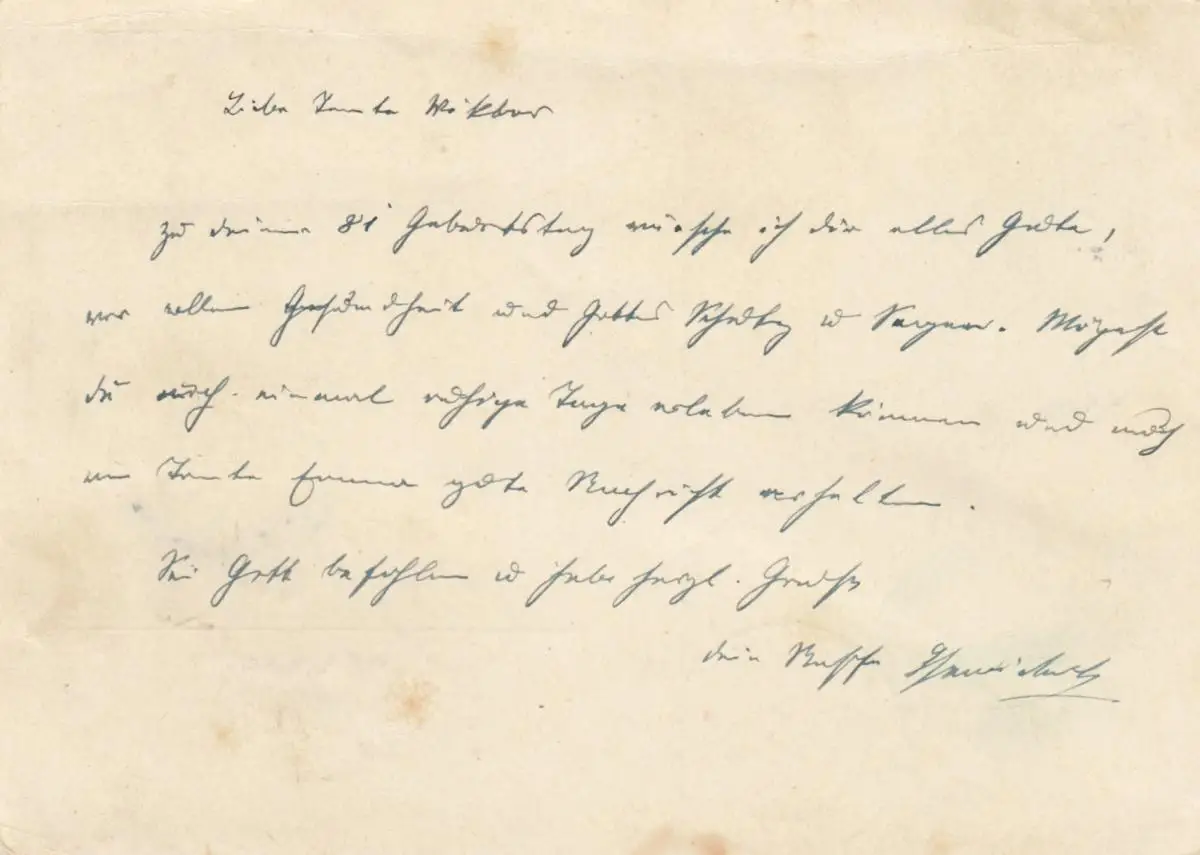 Liebe Tante
zu deinem 81 Geburtstag wünsche ich dir alles Gute,
vor allem Gesundheit und Gottes Schutz u Segen. Mögest
du noch einmal ruhige Tage erleben können und auch
von Tante Emma gute Nachricht erhalten.
Sei Gott befohlen u habe herzl. Grüße
dein Neffe